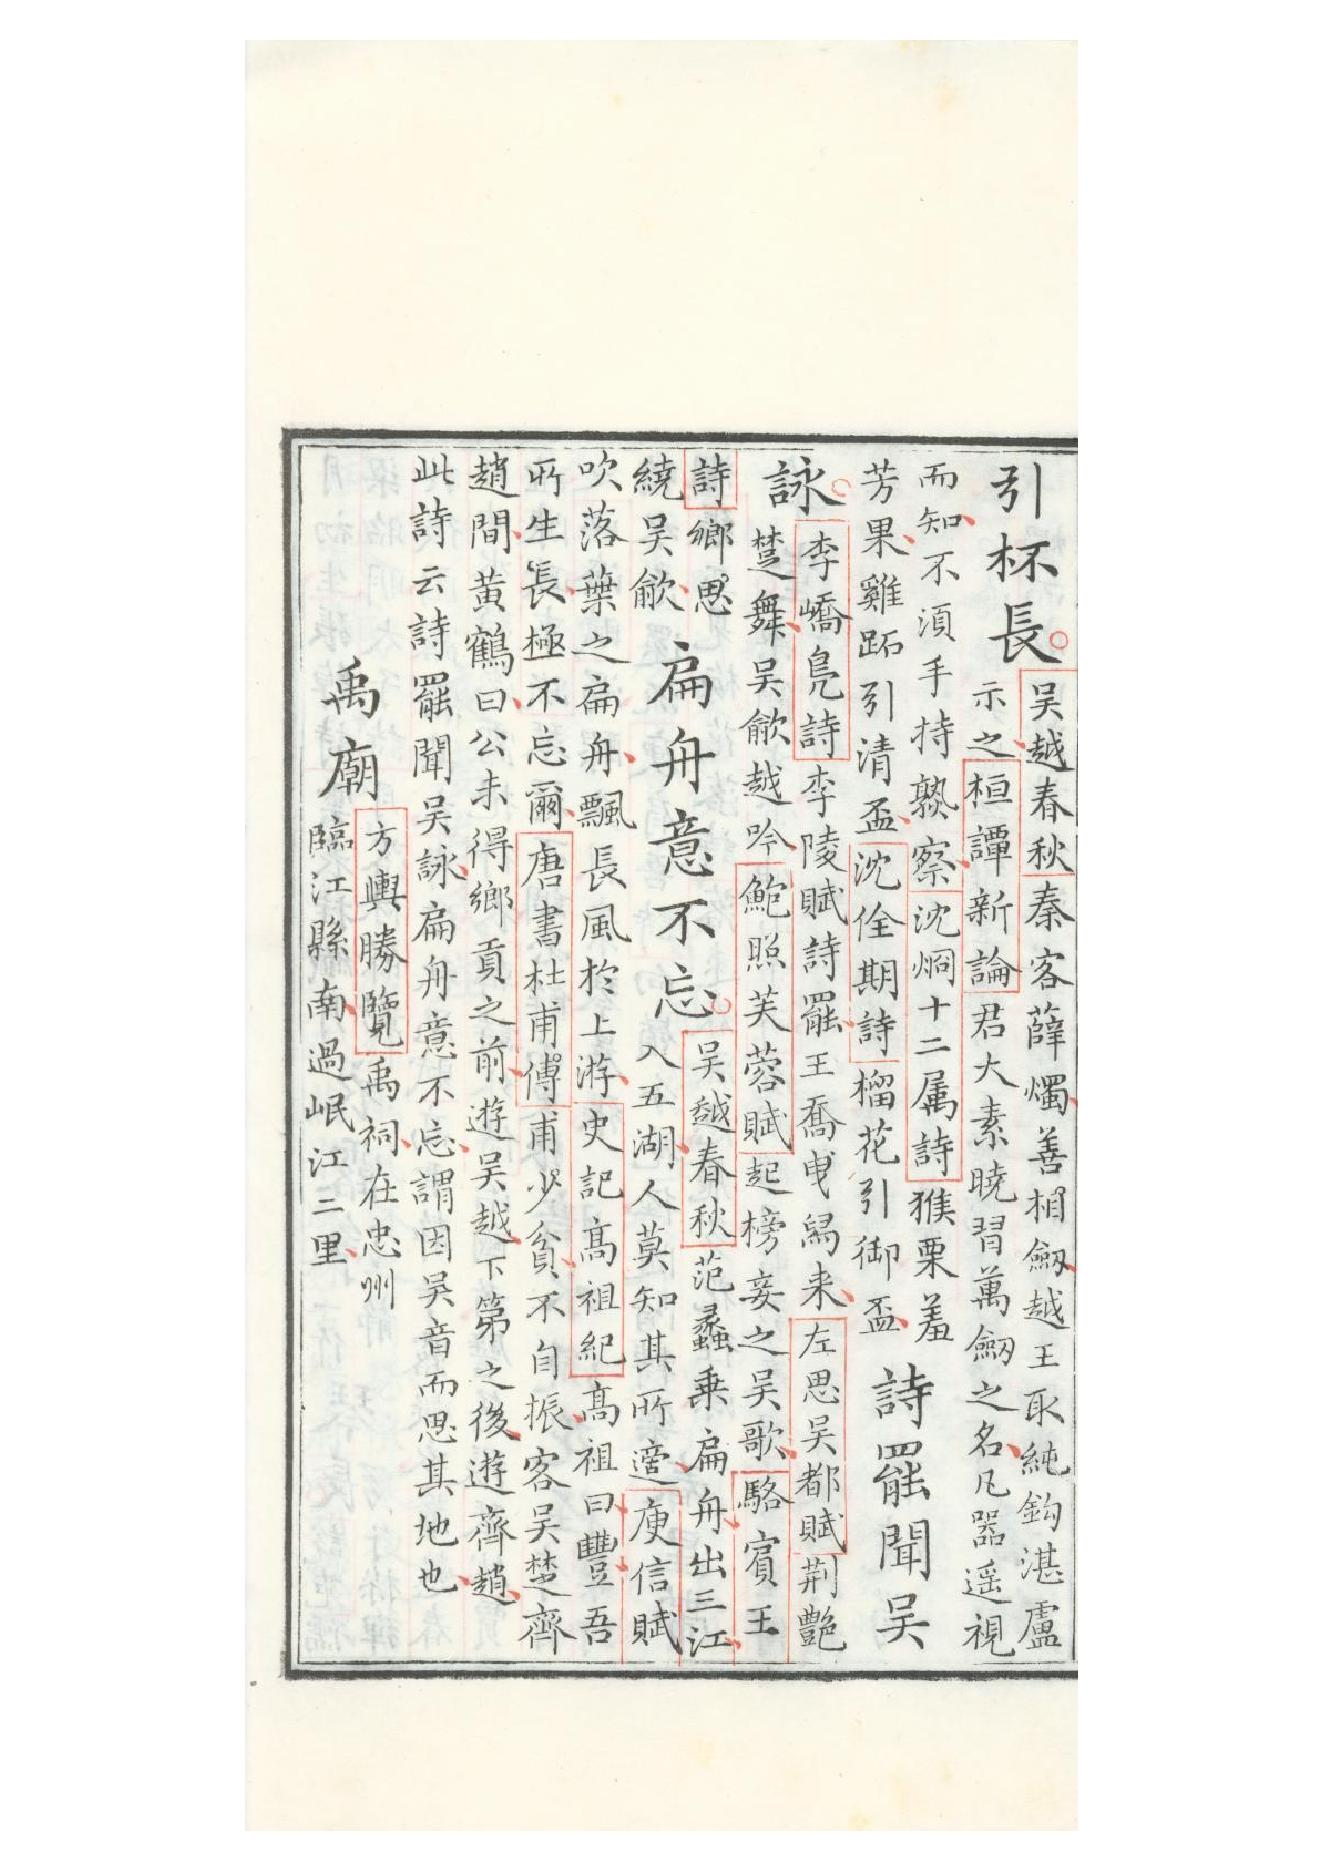 引杯長
吳越春秋秦客薛燭善相劒越王取純鈎湛盧
示之桓譚新論君大素曉習萬劒之名凡器遥視
而知不湏手持熟察沈烱十二属詩猴栗羞
芳果雞跖引清盃沈佺期詩榴花引御盃
詩罷聞吳
詠
李嶠鳧詩李陵賦詩罷王喬曵舄来左思吳都賦荆艷
楚舞吳歈越吟鮑照芙蓉賦起榜妾之吳歌駱賔王
詩鄉思
繞吳歈
扁舟意不忘
吳越春秋范蠡乗扁舟出三江
入五湖人莫知其所適庾信賦
吹落葉之扁舟飄長風於上游史記髙祖紀髙祖曰豐吾
所生長極不忘爾唐書杜甫傳甫少貧不自振客吳楚齊
趙間黃鶴曰公未得鄉貢之前遊吳越下第之後遊齊趙
此詩云詩罷聞吳詠扁舟意不忘謂因吳音而思其地也
禹廟
方輿勝覽禹祠在忠州
臨江縣南過岷江二里